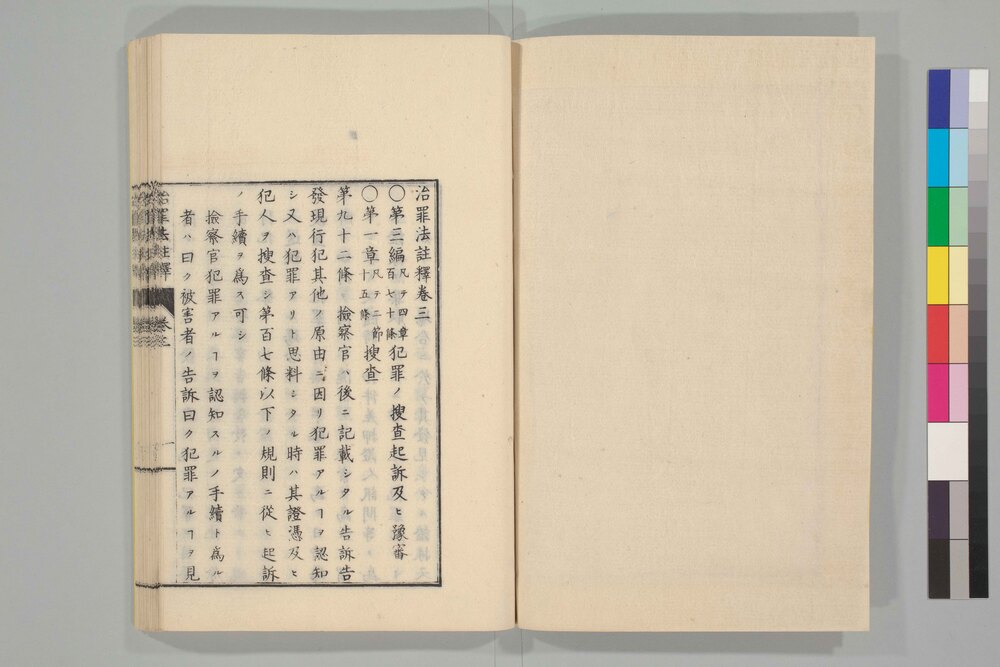 治罪法註釋卷三
○第三編凡テ四章百七十條犯罪ノ搜查起訴及ヒ豫審
○第一章凡テ二節十五條搜查
第九十二條 撿察官ハ後ニ記載シタル告訴告
發現行犯其他ノ原由ニ因リ犯罪アルヿヲ認知
シ又ハ犯罪アリト思料シタル時ハ其證憑及ヒ
犯人ヲ搜查シ第百七條以下ノ規則ニ從ヒ起訴
ノ手續ヲ爲ス可シ
撿察官犯罪アルヿヲ認知スルノ手續ト爲ル
者ハ曰ク被害者ノ告訴曰ク犯罪アルヿヲ見
治罪法註釋 卷三